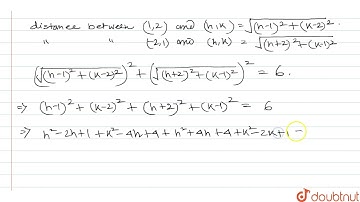 distance between (1,2) and (h,k) = √(h-1)²+(k-2)².
" " (-2,1) and (h,k) = √(h+2)²+(k-1)²
(√(h-1)²+(k-2)²)² + (√(h+2)²+(k-1)²)² = 6.
⇒ (h-1)² + (k-2)² + (h+2)² + (k-1)² = 6
⇒ h²-2h+1+k²-4h+4+h²+4h+4+k²-2k+1 =
doubtnut